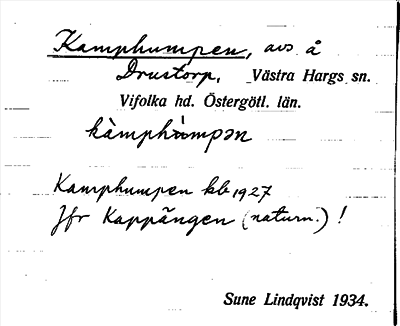 Kamphumpen, avs å
Drustorp, Västra Hargs sn.
Vifolka hd. Östergötl. län.
kàmphùmpən
Kamphumpen kb 1927
Jfr Kappängen (naturn.) !
Sune Lindqvist 1934.